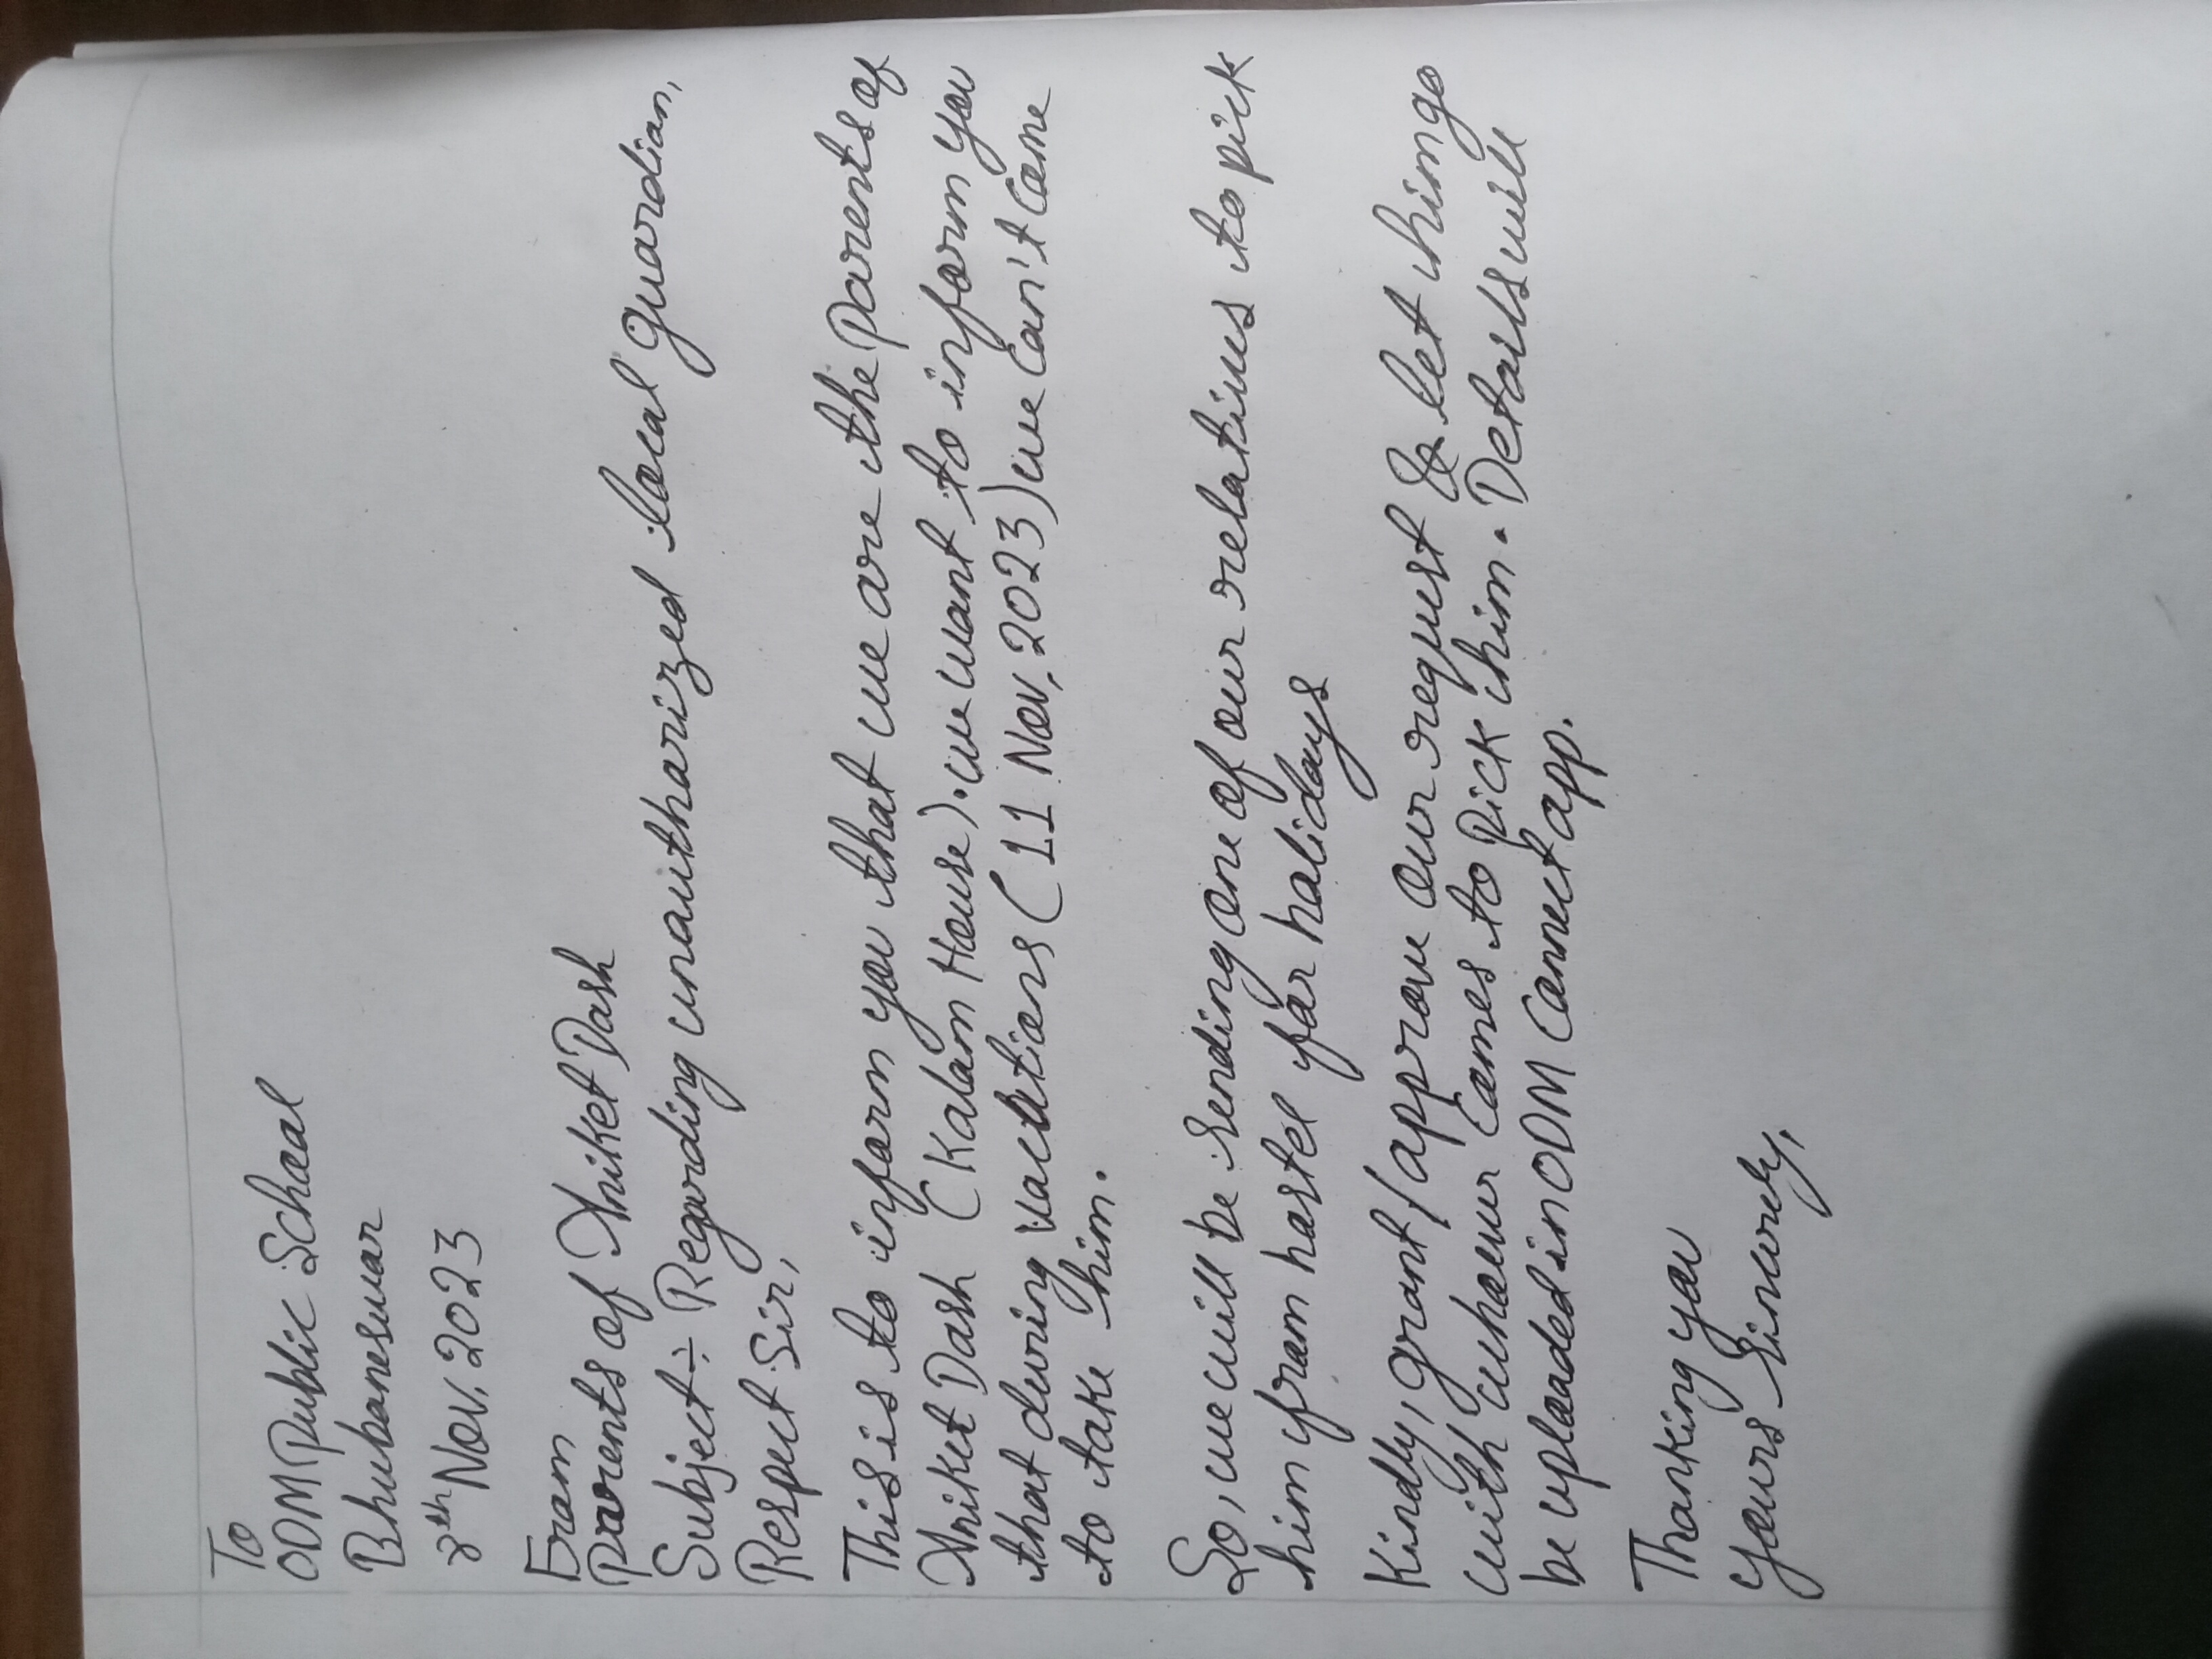 To
ODM Public School
Bhubaneswar
8th Nov, 2023
From
Parents of Aniket Dash
Subject ÷ Regarding unauthorized local guardian,
Respect Sir,
This is to inform you that we are the Parents of
Aniket Dash (Kalam House). we want to inform you
that during vacations (11 Nov, 2023) we can't come
to take him.
So, we will be sending one of our relatives to pick
him from hostel for holidays
Kindly, grant/approve our request & let him go
with whoever comes to pick him. Details will
be uploaded in ODM Connect app.
Thanking you
Yours Sincerely,